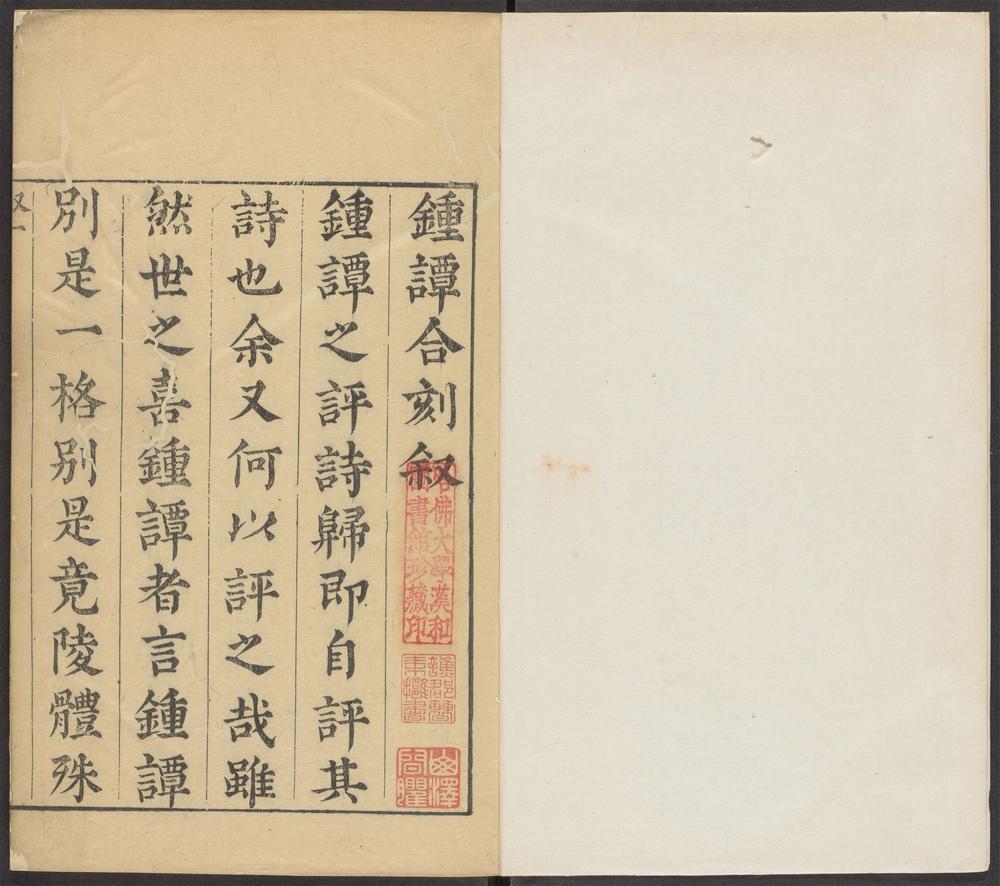 鍾譚合刻叙
鍾譚之評詩歸即自評其
詩也余又何以評之哉雖
然世之喜鍾譚者言鍾譚
別是一格別是竟陵體殊
叙一
哈佛大學漢和
圖書館珍藏印